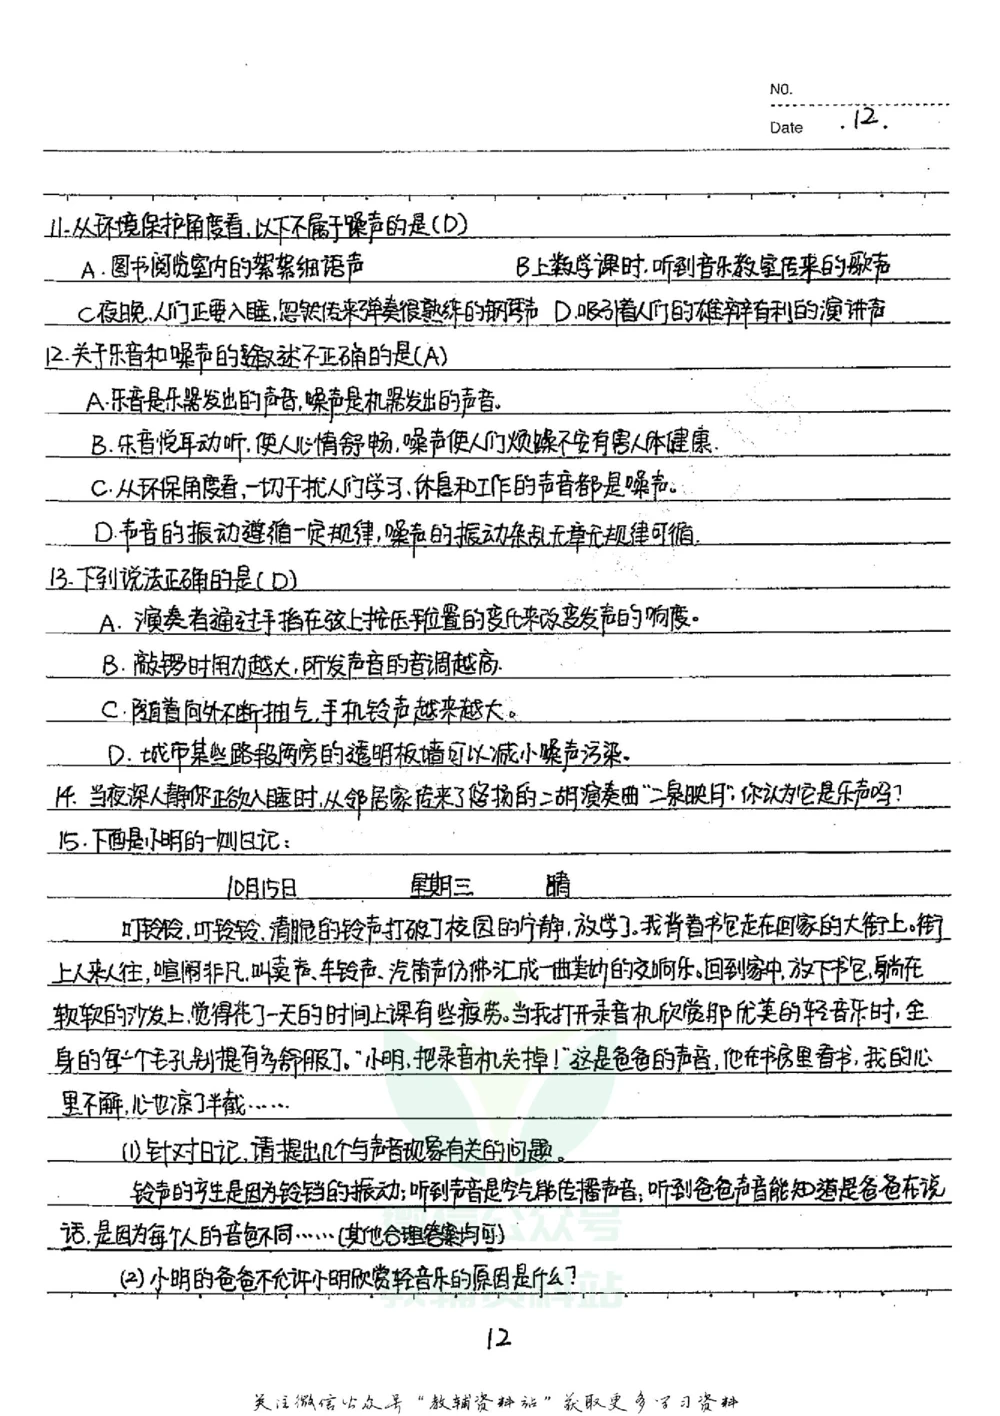 NO.
Date .12.
11.从环境保护角度看,以下不属于噪声的是(D)
A.图书阅览室内的絮絮细语声 B上数学课时,听到音乐教室传来的歌声
C夜晚,人们正要入睡,忽然传来弹奏很熟练的钢琴声 D.吸引着人们的雄辩有利的演讲声
12.关于乐音和噪声的叙述不正确的是(A)
A.乐音是乐器发出的声音,噪声是机器发出的声音。
B.乐音悦耳动听,使人心情舒畅,噪声使人们烦躁不安有害人体健康.
C.从环保角度看,一切干扰人们学习、休息和工作的声音都是噪声。
D.声音的振动遵循一定规律,噪声的振动杂乱无章无规律可循.
13.下列说法正确的是(D)
A.演奏者通过手指在弦上按压手位置的变化来改变发声的响度。
B.敲锣时用力越大,所发声音的音调越高.
C.随着向外不断抽气,手机铃声越来越大。
D.城市某些路段两旁的透明板墙可以减小噪声污染。
14.当夜深人静你正欲入睡时,从邻居家传来了悠扬的二胡演奏曲“二泉映月”,你认为它是乐声吗?
15.下面是小明的一则日记:
10月15日 星期三 晴
叮铃铃,叮铃铃,清脆的铃声打破了校园的宁静,放学了。我背着书包走在回家的大街上。街
上人来人往,喧闹非凡,叫卖声、车铃声、汽笛声仿佛汇成一曲美妙的交响乐。回到家中,放下书包,躺在
软软的沙发上,觉得花了一天的时间上课有些疲劳。当我打开录音机欣赏那优美的轻音乐时,全
身的每一个毛孔别提有多舒服了。“小明,把录音机关掉!这是爸爸的声音,他在书房里看书,我的心
里不解,心也凉了半截……
(1)针对日记,请提出几个与声音现象有关的问题。
铃声的产生是因为铃铛的振动;听到声音是空气能传播声音;听到爸爸声音能知道是爸爸在说
话,是因为每个人的音色不同……(其他合理答案均可)
(2)小明的爸爸不允许小明欣赏轻音乐的原因是什么?
教辅资料站
12
关注微信公众号“教辅资料站”获取更多学习资料